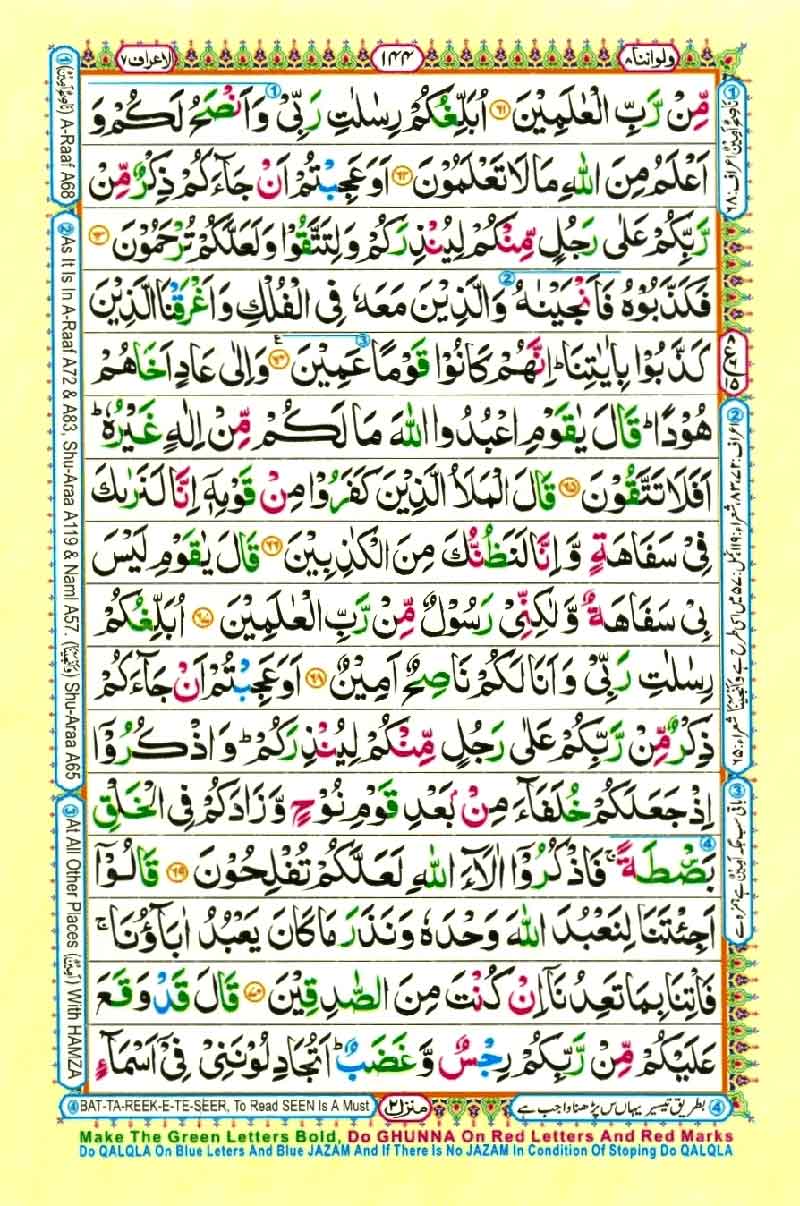 ولواننا ۸
۱۴۴
الاعراف ۷
مِّنْ رَّبِّ الْعٰلَمِیْنَ ﴿۶۱﴾ اُبَلِّغُكُمْ رِسٰلٰتِ رَبِّیْ وَ اَنْصَحُ لَكُمْ وَ
اَعْلَمُ مِنَ اللّٰهِ مَا لَا تَعْلَمُوْنَ ﴿۶۲﴾ اَوَ عَجِبْتُمْ اَنْ جَآءَكُمْ ذِكْرٌ مِّنْ
رَّبِّكُمْ عَلٰی رَجُلٍ مِّنْكُمْ لِیُنْذِرَكُمْ وَ لِتَتَّقُوْا وَ لَعَلَّكُمْ تُرْحَمُوْنَ ﴿۶۳﴾
فَكَذَّبُوْهُ فَاَنْجَیْنٰهُ وَ الَّذِیْنَ مَعَهٗ فِی الْفُلْكِ وَ اَغْرَقْنَا الَّذِیْنَ
كَذَّبُوْا بِاٰیٰتِنَا ؕ اِنَّهُمْ كَانُوْا قَوْمًا عَمِیْنَ ﴿۶۴﴾ وَ اِلٰی عَادٍ اَخَاهُمْ
هُوْدًا ؕ قَالَ یٰقَوْمِ اعْبُدُوا اللّٰهَ مَا لَكُمْ مِّنْ اِلٰهٍ غَیْرُهٗ ؕ
اَفَلَا تَتَّقُوْنَ ﴿۶۵﴾ قَالَ الْمَلَاُ الَّذِیْنَ كَفَرُوْا مِنْ قَوْمِهٖۤ اِنَّا لَنَرٰىكَ
فِیْ سَفَاهَةٍ وَّ اِنَّا لَنَظُنُّكَ مِنَ الْكٰذِبِیْنَ ﴿۶۶﴾ قَالَ یٰقَوْمِ لَیْسَ
بِیْ سَفَاهَةٌ وَّ لٰكِنِّیْ رَسُوْلٌ مِّنْ رَّبِّ الْعٰلَمِیْنَ ﴿۶۷﴾ اُبَلِّغُكُمْ
رِسٰلٰتِ رَبِّیْ وَ اَنَا لَكُمْ نَاصِحٌ اَمِیْنٌ ﴿۶۸﴾ اَوَ عَجِبْتُمْ اَنْ جَآءَكُمْ
ذِكْرٌ مِّنْ رَّبِّكُمْ عَلٰی رَجُلٍ مِّنْكُمْ لِیُنْذِرَكُمْ ؕ وَ اذْكُرُوْۤا
اِذْ جَعَلَكُمْ خُلَفَآءَ مِنْۢ بَعْدِ قَوْمِ نُوْحٍ وَّ زَادَكُمْ فِی الْخَلْقِ
بَصْۜطَةً ۚ فَاذْكُرُوْۤا اٰلَآءَ اللّٰهِ لَعَلَّكُمْ تُفْلِحُوْنَ ﴿۶۹﴾ قَالُوْۤا
اَجِئْتَنَا لِنَعْبُدَ اللّٰهَ وَحْدَهٗ وَ نَذَرَ مَا كَانَ یَعْبُدُ اٰبَآؤُنَا ۚ
فَاْتِنَا بِمَا تَعِدُنَاۤ اِنْ كُنْتَ مِنَ الصّٰدِقِیْنَ ﴿۷۰﴾ قَالَ قَدْ وَقَعَ
عَلَیْكُمْ مِّنْ رَّبِّكُمْ رِجْسٌ وَّ غَضَبٌ ؕ اَتُجَادِلُوْنَنِیْ فِیْۤ اَسْمَآءٍ
① (نَاصِحٌ اَمِیْنٌ) A-Raaf A68
② As It Is In A-Raaf A72 & A83, Shu-Araa A119 & Naml A57. Shu-Araa A65
③ At All Other Places With HAMZA
① نَاصِحٌ اَمِیْنٌ اعراف: ۶۸
④ BAT-TA-REEK-E-TE-SEER, To Read SEEN Is A Must
منزل ۲
④ بطریق تیسیر یہاں س پڑھنا واجب ہے
Make The Green Letters Bold, Do GHUNNA On Red Letters And Red Marks
Do QALQLA On Blue Leters And Blue JAZAM And If There Is No JAZAM In Condition Of Stoping Do QALQLA